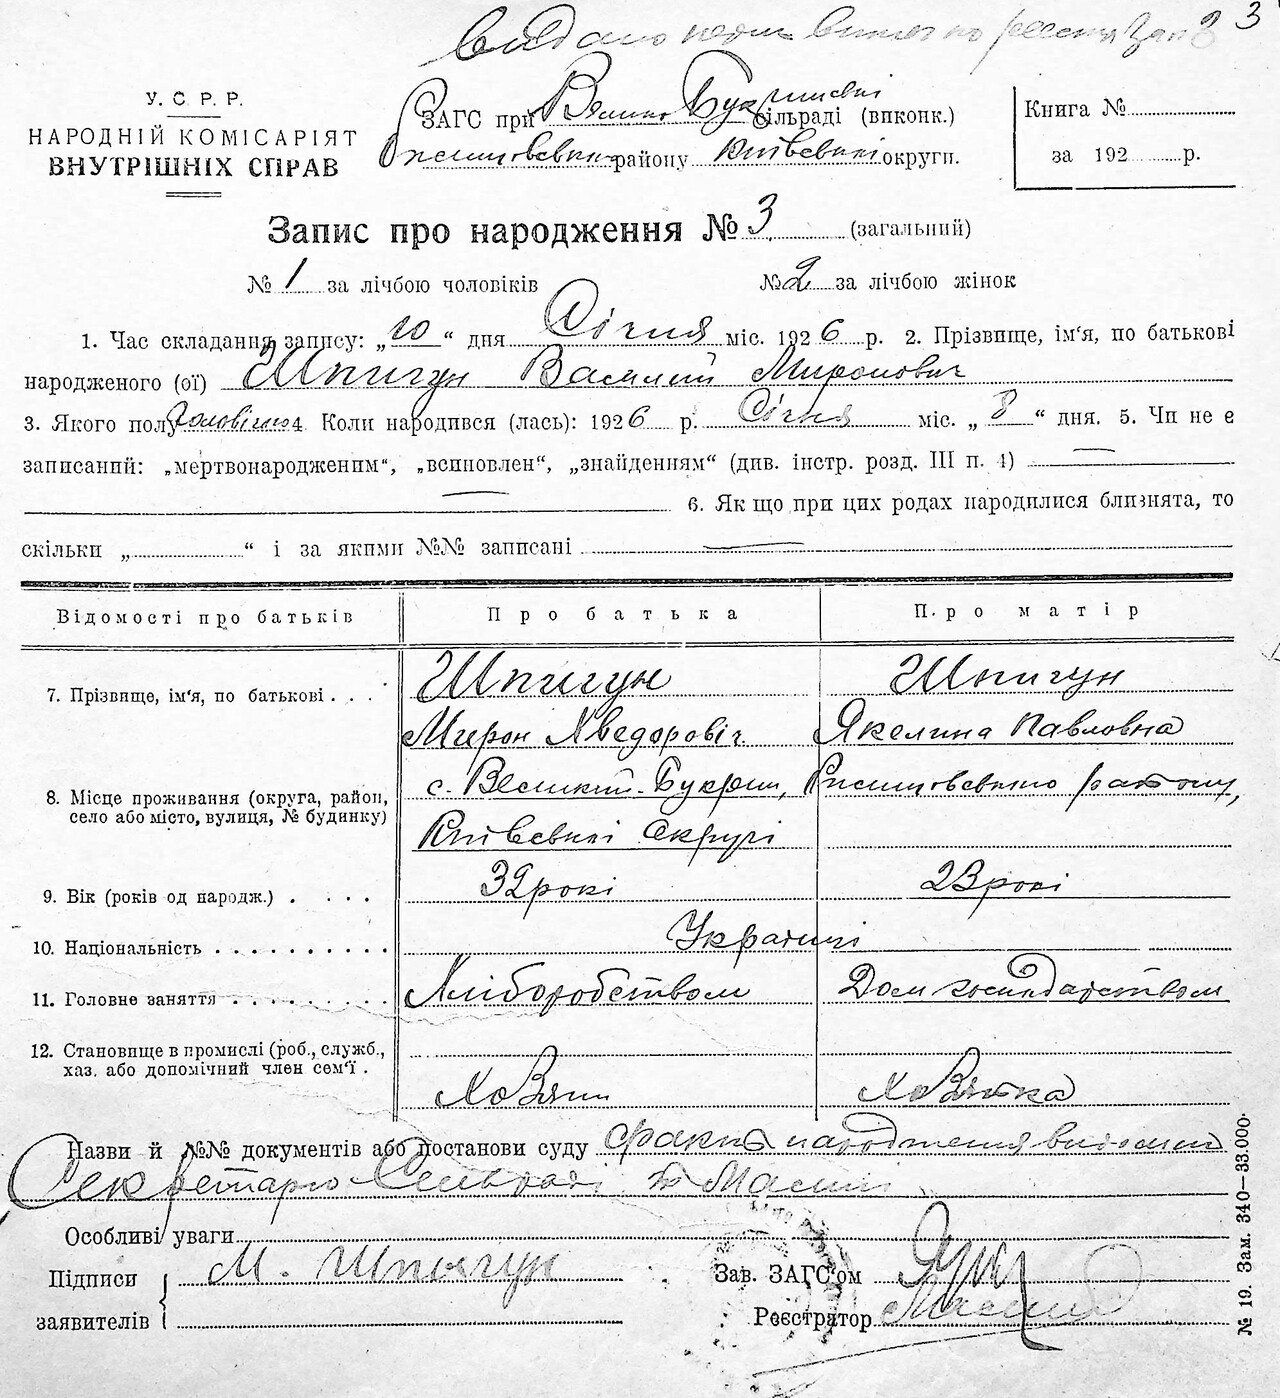 Видано
3
У. С. Р. Р.
НАРОДНІЙ КОМІСАРІЯТ
ВНУТРІШНІХ СПРАВ
ЗАГС при Велико Букринскі сільраді (виконк.)
району Київській округи.
Книга №
за 192 р.
Запис про народження № 3 (загальний)
№ 1 за лічбою чоловіків № 2 за лічбою жінок
1. Час складання запису: „10“ дня Січня міс. 1926 р. 2. Прізвище, ім'я, по батькові
народженого (ої) Шпигун Василий Миронович
3. Якого полу чоловічого 4. Коли народився (лась): 1926 р. Січня міс. „8“ дня. 5. Чи не є
записаний: „мертвонародженим“, „всиновлен“, „знайденям“ (див. інстр. розд. III п. 4) —
— 6. Як що при цих родах народилися близнята, то
скільки „ “ і за якими №№ записані —
Відомості про батьків Про батька Про матір
7. Прізвище, ім'я, по батькові . . . Шпигун Шпигун
Мирон Хведоровіч Якелина Павловна
8. Місце проживання (округа, район,
село або місто, вулиця, № будинку)
с. Великий-Букрин, району,
Київській Округі
9. Вік (років од народж.) . . . . 32 рокі 23 рокі
10. Національність . . . . . . . . . . Українці
11. Головне заняття . . . . . . . . . Хліборобством Дом господарством
12. Становище в промислі (роб., служб.,
хаз. або допомічний член сем'ї .
Хозяин Хозяйка
Назви й №№ документів або постанови суду факт народження відомий
Секретарю Сельраді т. Масиш
Особливі уваги
Підписи М. Шпыгун Зав. ЗАГС'ом
заявителів Реєстратор
№ 19. Зам. 340—33.000.